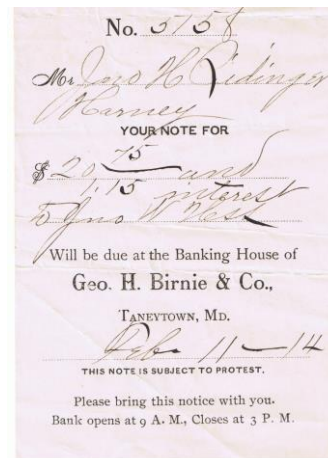 No. 5158
Mr Jno H Ridinger
Harney
YOUR NOTE FOR
$ 20 75 and
1.15 interest
To Jno W Hess
Will be due at the Banking House of
Geo. H. Birnie & Co.,
TANEYTOWN, MD.
Feb. 11 - 14
THIS NOTE IS SUBJECT TO PROTEST.
Please bring this notice with you.
Bank opens at 9 A. M., Closes at 3 P. M.